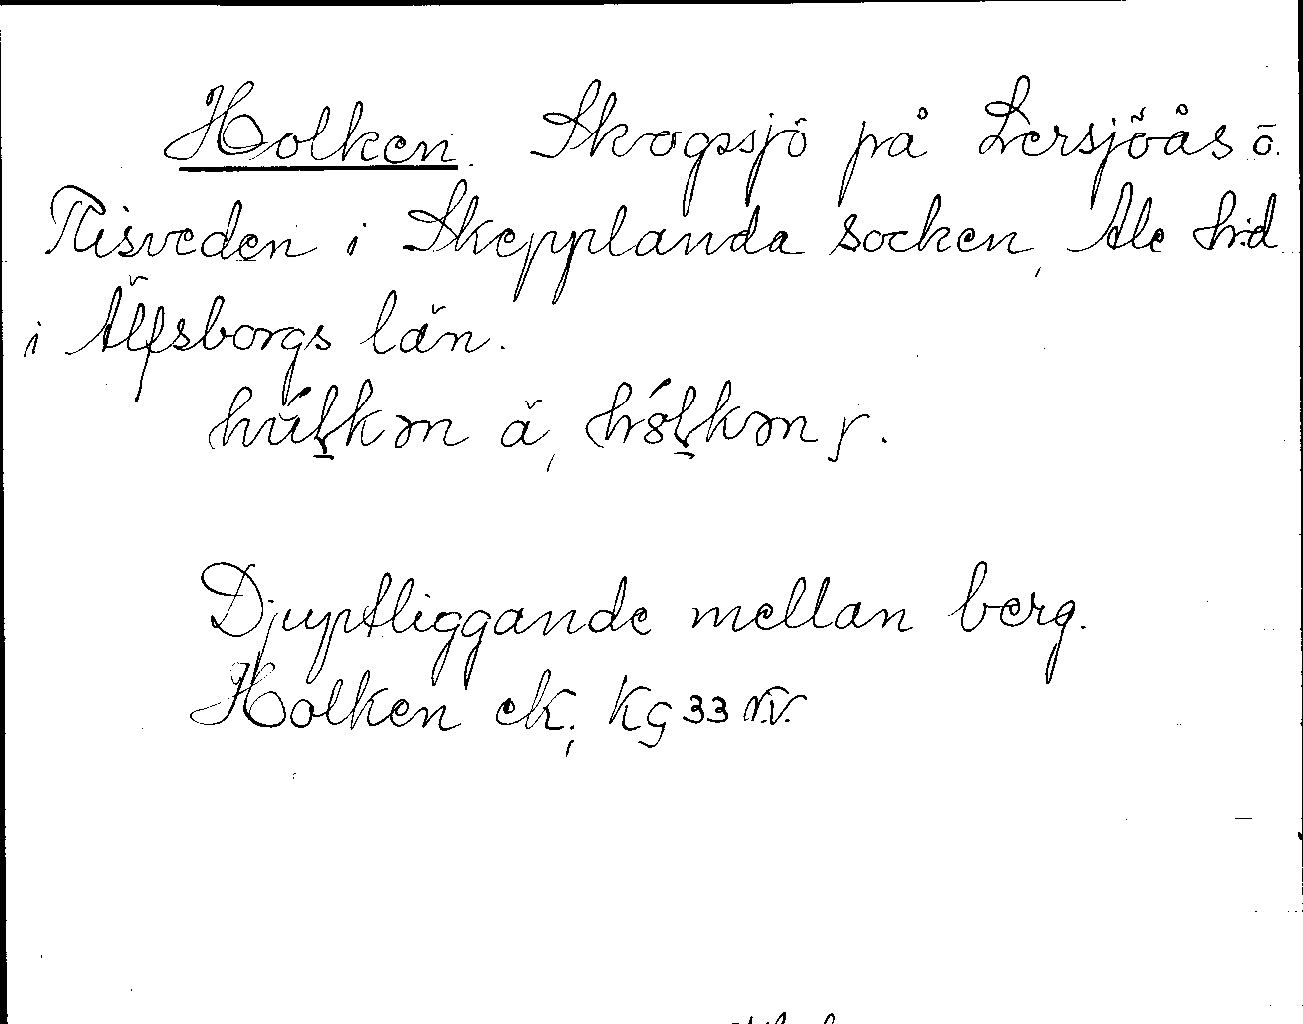 Holken. Skogssjö på Lersjöås ö.
Risveden i Skepplanda socken, Ale h:d
i Älfsborgs län.
Djuptliggande mellan berg.
Holken ek; Kg 33 n.v.